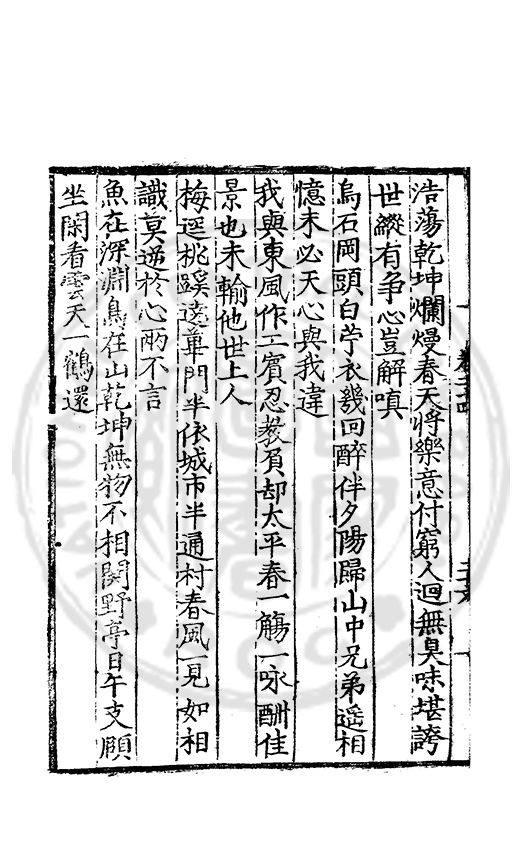 浩蕩乾坤爛熳春天將樂意付窮人迴無臭味堪誇
世縱有争心豈解嗔
烏石岡頭白苧衣幾回醉伴夕陽歸山中兄弟遥相
憶未必天心與我違
我與東風作二賓忍教負却太平春一觴一咏酬佳
景也未輸他世上人
梅逕桃蹊遶蓽門半依城市半通村春風一見如相
識莫逆於心兩不言
魚在深淵鳥在山乾坤無物不相関野亭日午支頤
坐閑看雲天一鶴還